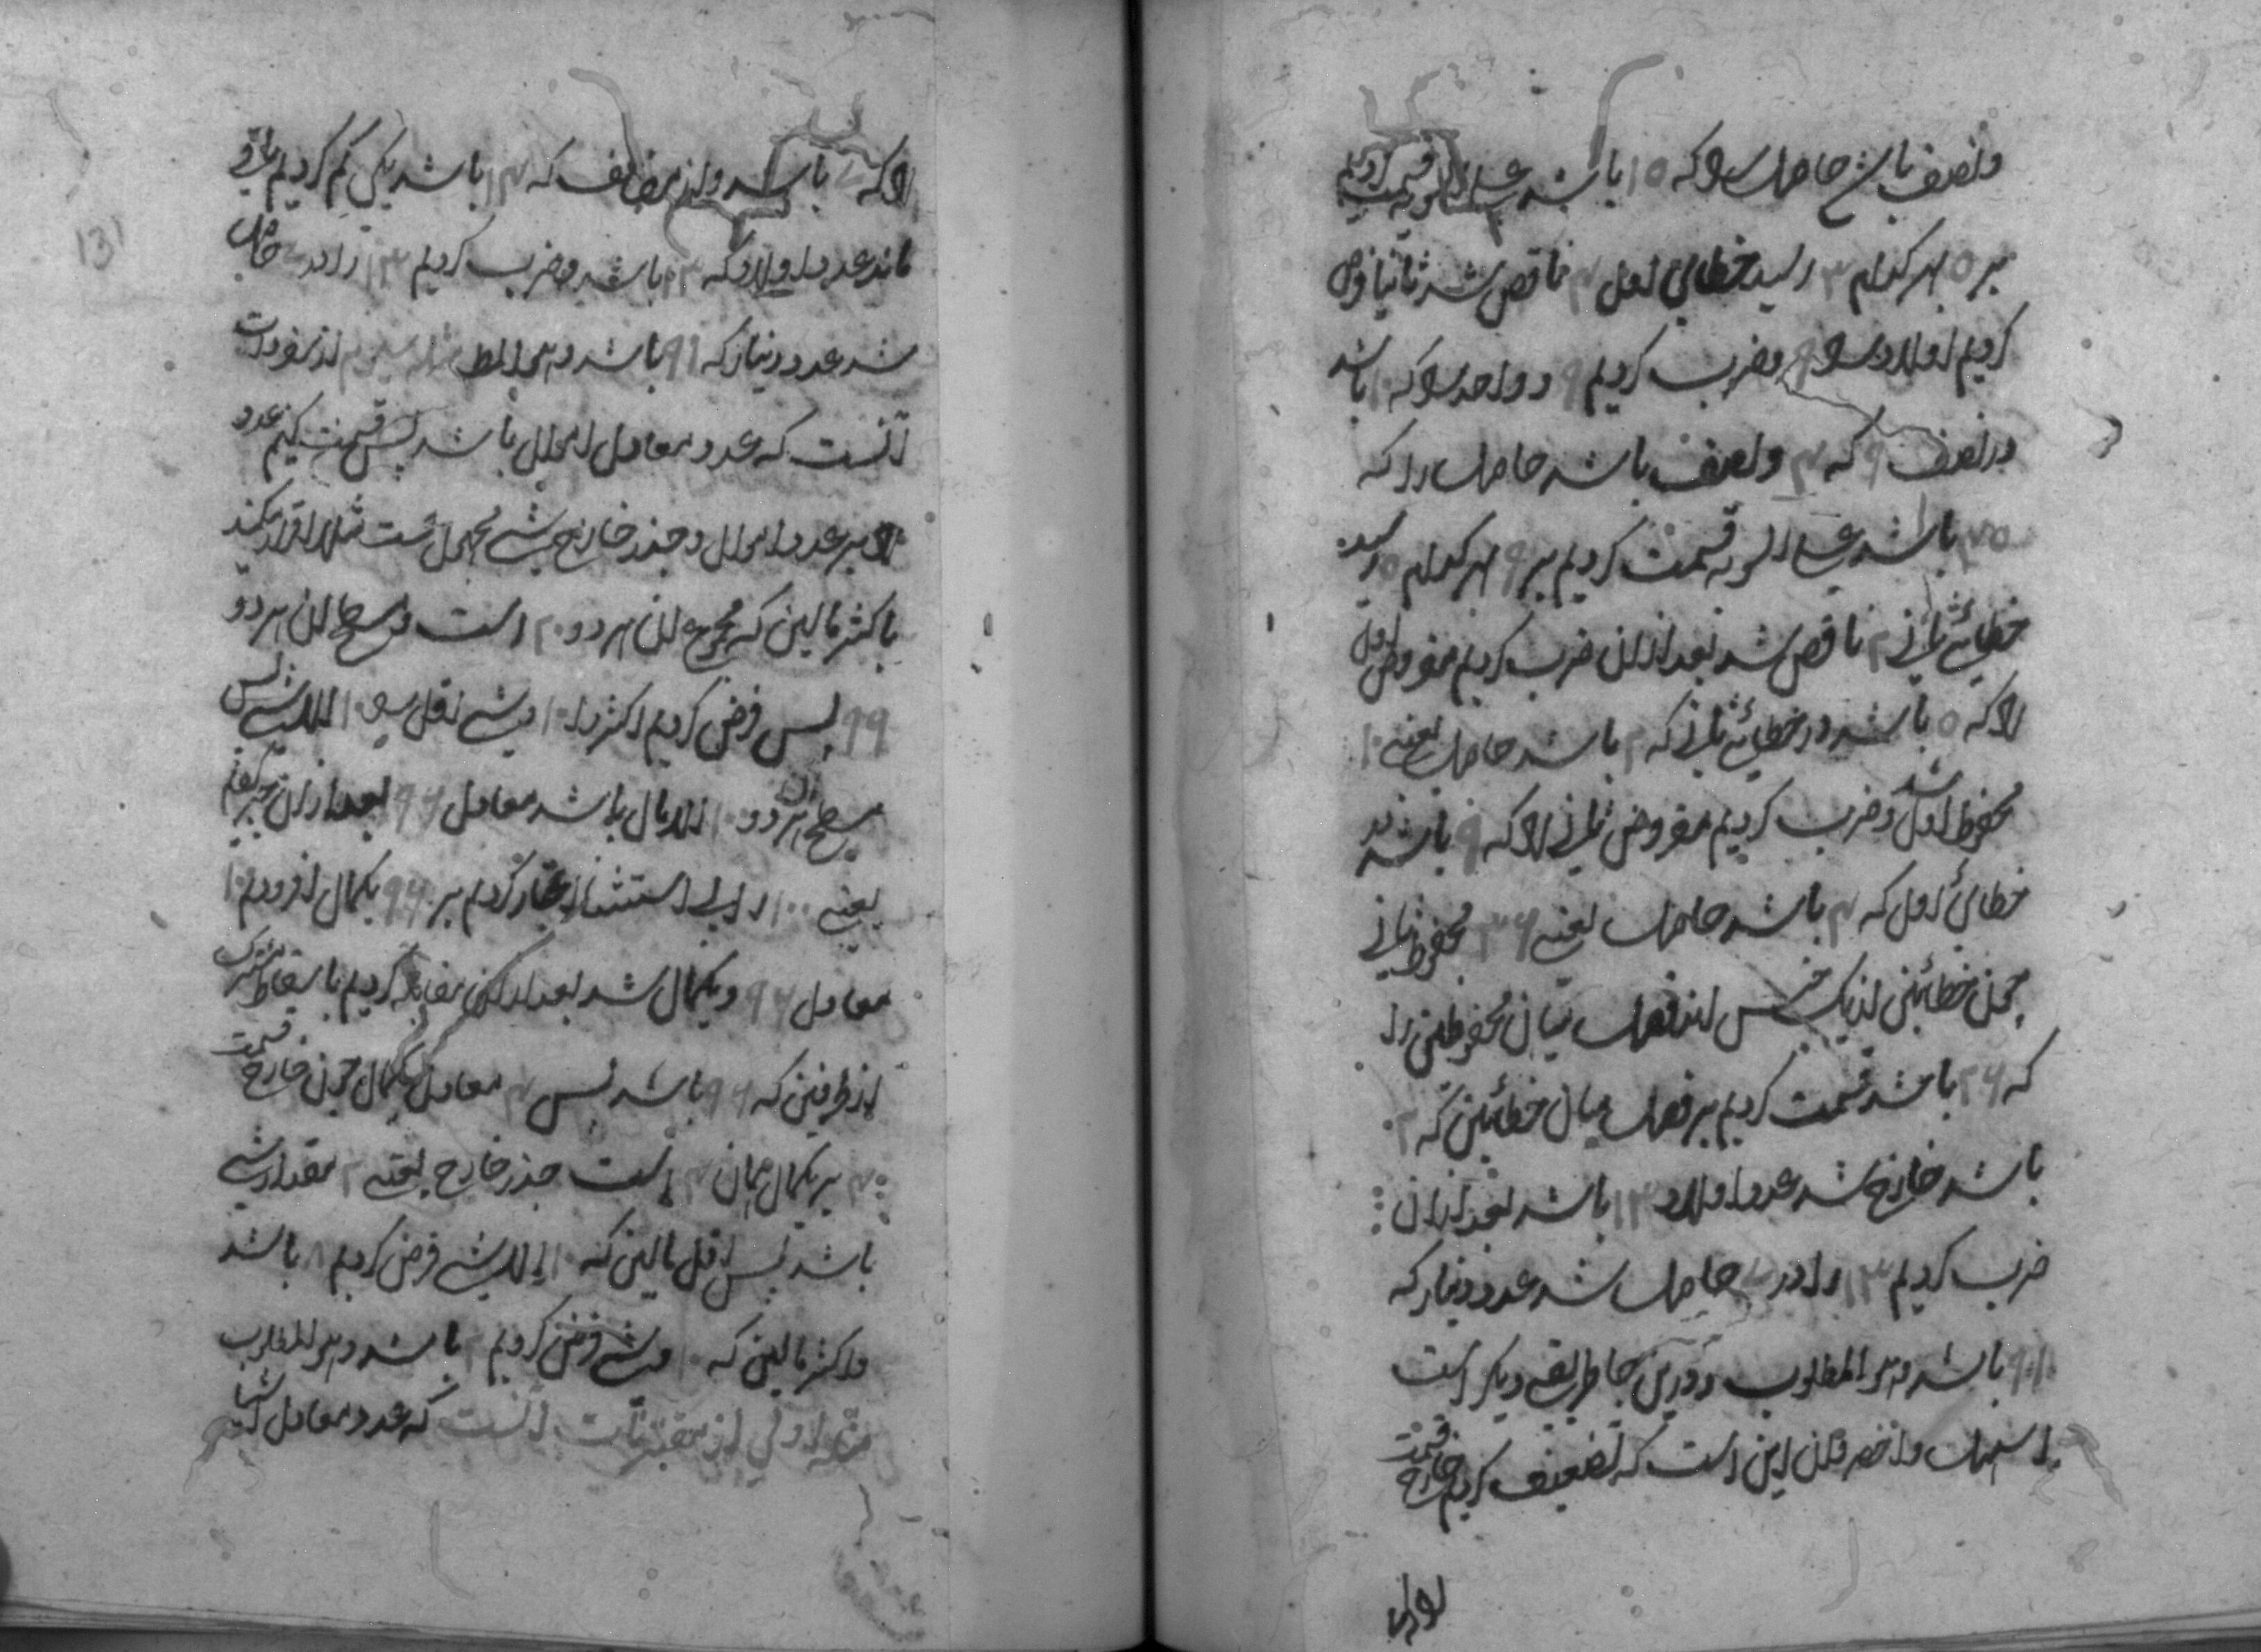 ونصف باشد حاصل را که ۱۵ باشد علی السویه قسمت کردیم
بر ۵ هر کدام ۳ رسید خطای اول ۴ ناقص شد ثانیا فرض
کردیم اولاد را ۹ و ضرب کردیم ۹ و واحد را که ۱۰ باشد
در نصف ۹ که ۴ و نصف باشد حاصل را که
۴۵ باشد علی السویه قسمت کردیم بر ۹ هر کدام ۵ رسید
خطائی ثانی ۲ ناقص شد بعد از ان ضرب کردیم مفروض اول
را که ۵ باشد در خطائی ثانی که ۲ باشد حاصل یعنی ۱۰
محفوظ اول شد و ضرب کردیم مفروض ثانی را که ۹ باشد در
خطائی اول که ۴ باشد حاصل یعنی ۳۶ محفوظ ثانی
چون خطائین از یک جنس اند فصل میان محفوظین را
که ۲۶ باشد قسمت کردیم بر فصل میان خطائین که ۲
باشد خارج شد عدد اولاد ۱۳ باشد بعد از ان
ضرب کردیم ۱۳ را در ۷ حاصل شد عدد دینار که
۹۱ باشد و هو المطلوب و درین جا طریقی دیگر است
اسهل و اخصر و ان این است که تضعیف کردیم خارج قسمت
را که ۷ باشد و از مضاعف که ۱۴ باشد یکی کم کردیم باقی
ماند عدد اولاد که ۱۳ باشد و ضرب کردیم ۱۳ را در ۷ حاصل
شد عدد دینار که ۹۱ باشد و هو المطلوب مسئله سیوم از مفردات
آنست که عدد معادل اموال باشد پس قسمت کنیم عدد
را بر عدد اموال و جذر خارج شیٔ مجهول است مثلا اقرار کند
باکثر مالین که مجموع ان هر دو ۲۰ است و مسطح ان هر دو
۹۶ پس فرض کردیم اکثر را ۱۰ و شیٔ اقل را ۱۰ الا شیٔ پس
مسطح ان هر دو ۱۰۰ الا مال باشد معادل ۹۶ بعد از ان جبر کردیم
یعنی ۱۰۰ را بی استثنا اعتبار کردیم بر ۹۶ یکمال افزودیم ۱۰۰
معادل ۹۶ و یکمال شد بعد از ان مقابله کردیم باسقاط مشترک
از طرفین که ۹۶ باشد پس ۴ معادل یکمال چون خارج قسمت
۴ بر یکمال همان ۴ است جذر خارج یعنی ۲ مقدار شیٔ
باشد پس اقل مالین که ۱۰ الا شیٔ فرض کردیم ۸ باشد
و اکثر مالین که ۱۰ و شیٔ فرض کردیم ۱۲ باشد و هو المطلوب
مسئله اولی از مقترنات آنست که عدد معادل اشیا